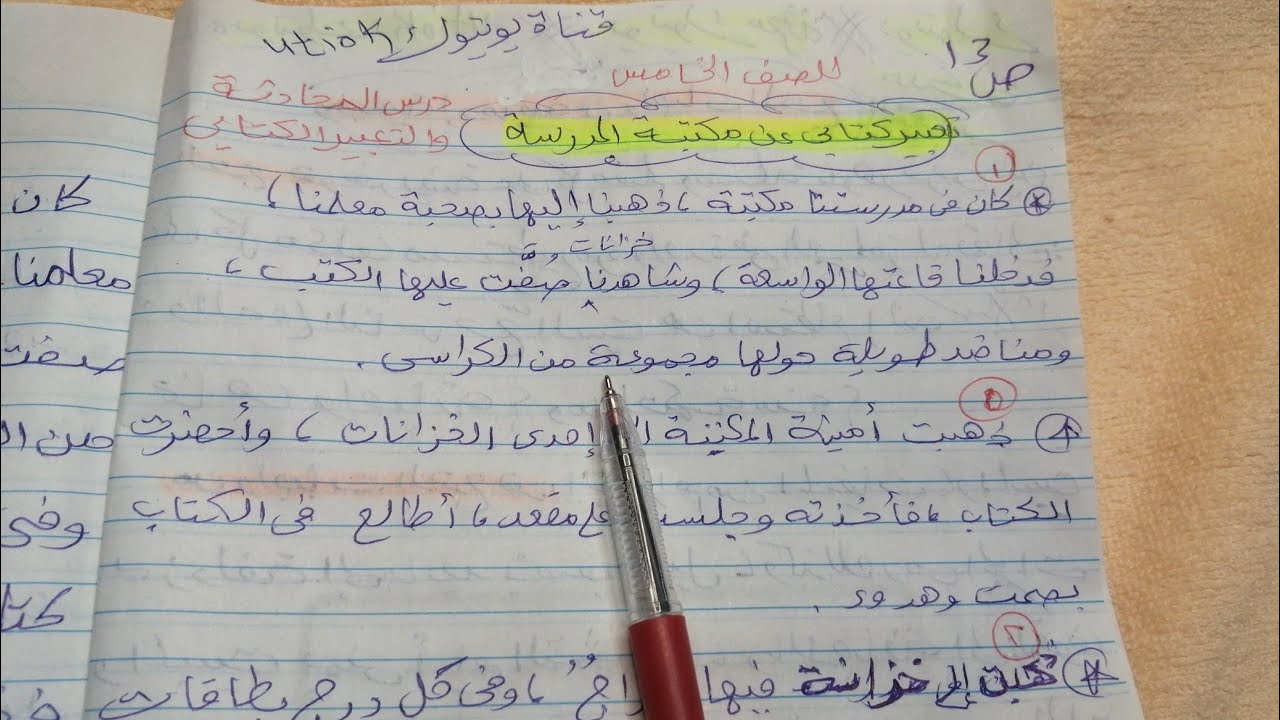 قناة يوتيوك utiok
ص 13
للصف الخامس
درس المحادثة
والتعبير الكتابي
تعبير كتابي عن مكتبة المدرسة
١
كان في مدرستنا مكتبة ، ذهبنا إليها بصحبة معلمنا ،
خزانات
فدخلنا قاعتها الواسعة ، وشاهدنا صُفَّت عليها الكتب ،
ومناضد طويلة حولها مجموعة من الكراسي .
٥
ذهبت أمينة المكتبة إحدى الخزانات ، وأحضرت
الكتاب ، فأخذته وجلست على مقعد ، أطالع في الكتاب
بصمت وهدوء .
٢
إلى خزانة فيها ، وفي كل درج بطاقات
كان
معلمنا
صفت
من
وفي